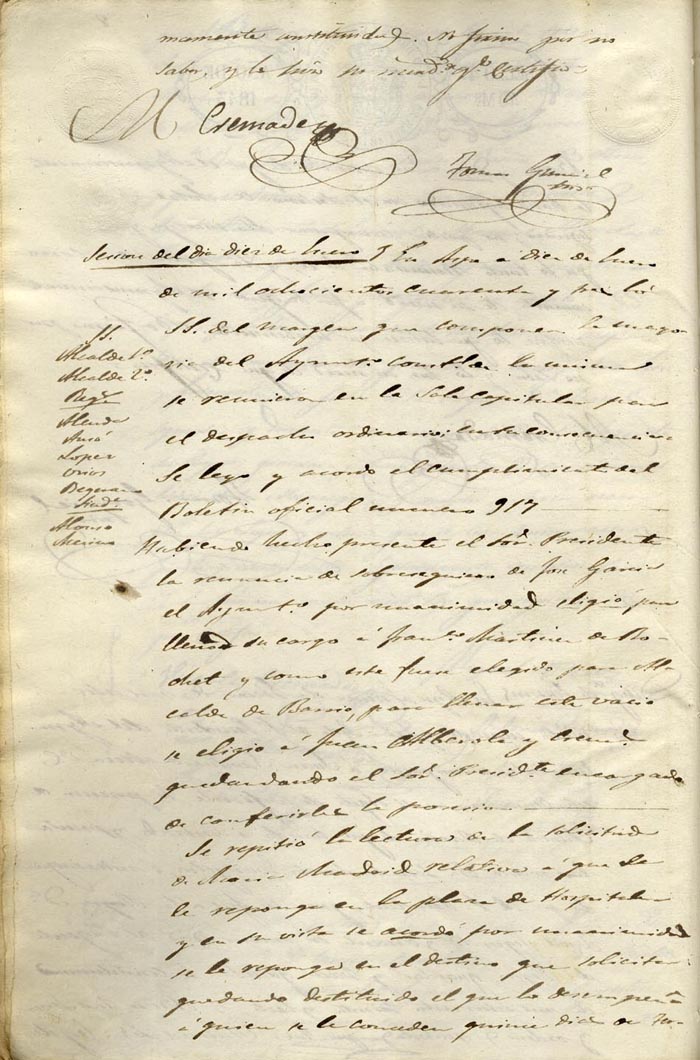 mamente constituida. No firma por no
saber, y lo hizo su merd. de q.e Certifico
M Cremades
Tomas
Srio
Sesion del dia diez de Enero } En Aspe a diez de Enero
de mil ochocientos cuarenta y tres los
SS. del margen que componen la mayo
ria del Ayunt.o const.l de la misma
se reunieron en la Sala capitular para
el despacho ordinario, en su consecuencia
Se leyo y acordo el cumplimiento del
Boletin oficial numero 917
SS.
Alcalde 1.o
Alcalde 2.o
Reg.s
Almda
Lopez
Sind.s
Alonso
Merino
Habiendo hecho presente el Sor. Presidente
la renuncia de sobreseguiero de Jose Garcia
el Ayunt.o por unanimidad eligió para
llenar su cargo á Fran.co Martinez de
y como este fuese elegido para Al
calde de Barrio, para llenar este vacio
se eligio á Juan Alberola y Crem.s
quedandando el Sor. Presid.te encargado
de conferirles la posesion
Se repitió la lectura de la solicitud
de Maria Madrid relativa á que se
le reponga en la plaza de Hospitalera
y en su vista se acordó por unanimidad
se le reponga en el destino que solicita
quedando destituido el que lo desempeña
á quien se le conceden quince dias de ter-